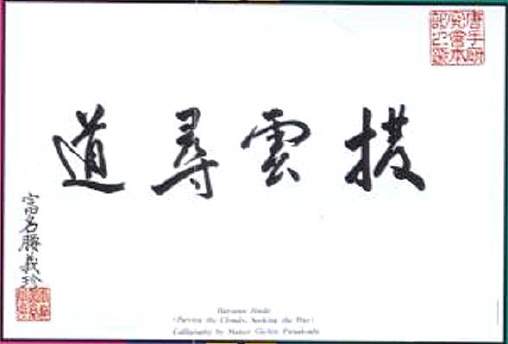 撥雲尋道
富名腰義珍
Hatsuun Jindo
(Parting the Clouds, Seeking the Way)
Calligraphy by Master Gichin Funakoshi